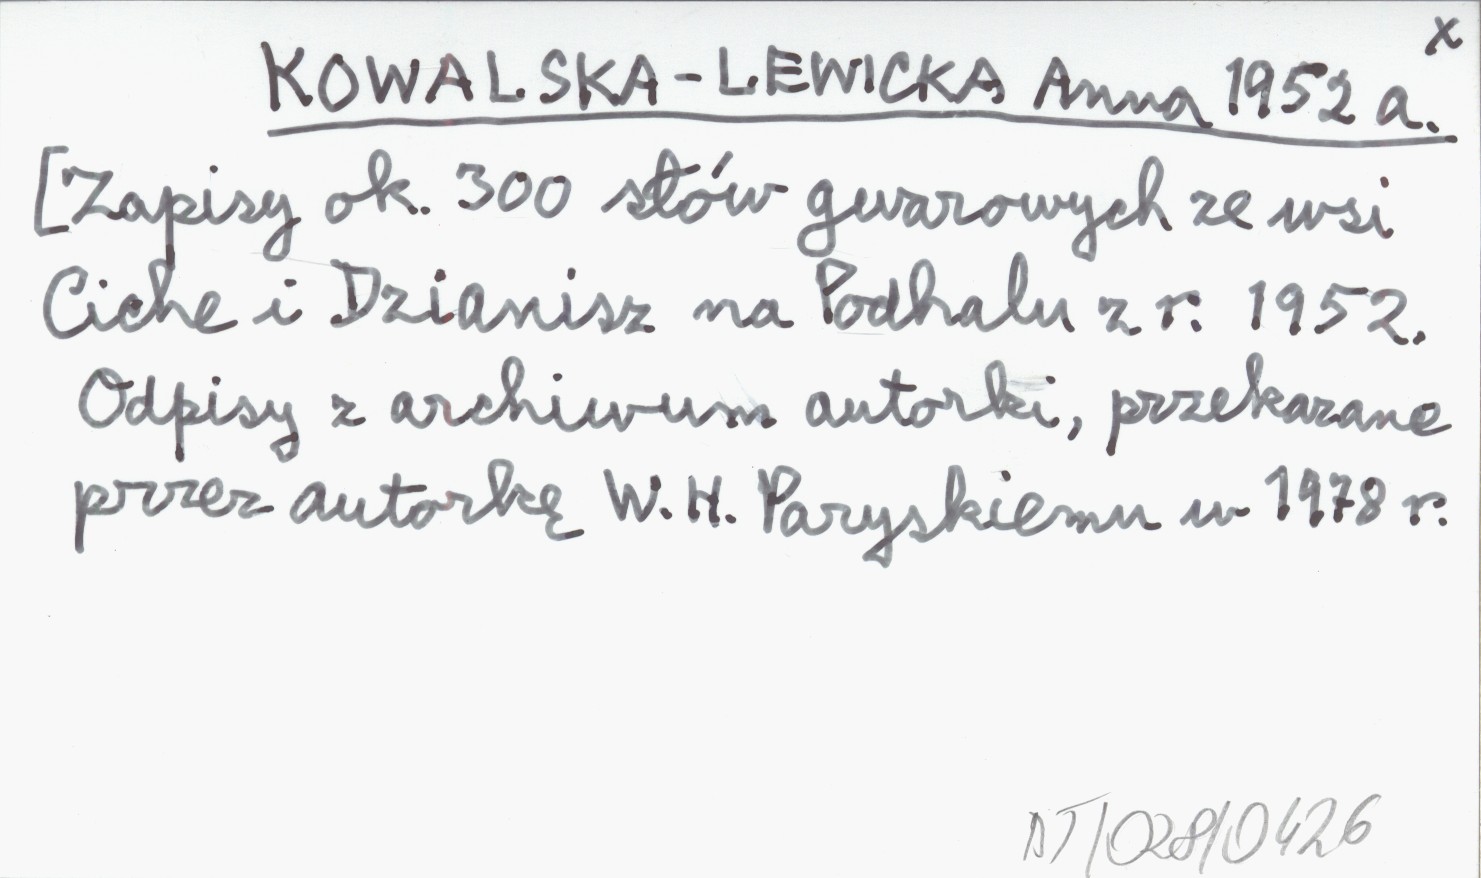 x
KOWALSKA-LEWICKA Anna 1952 a.
[Zapisy ok. 300 słów gwarowych ze wsi
Ciche i Dzianisz na Podhalu z r. 1952.
Odpisy z archiwum autorki, przekazane
przez autorkę W. H. Paryskiemu w 1978 r.
DT/028/0426